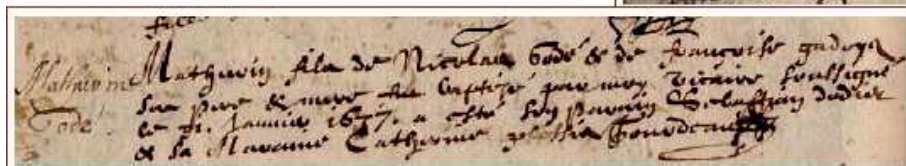 Mathurin
Godé
Mathurin filz de Nicolas Godé & de françoise gadoys
Ses pere & mere fut baptizé par moy vicaire soubsigné
le janvier 1637. a esté son parain Sebastian dodier
& sa Maraine Catherine